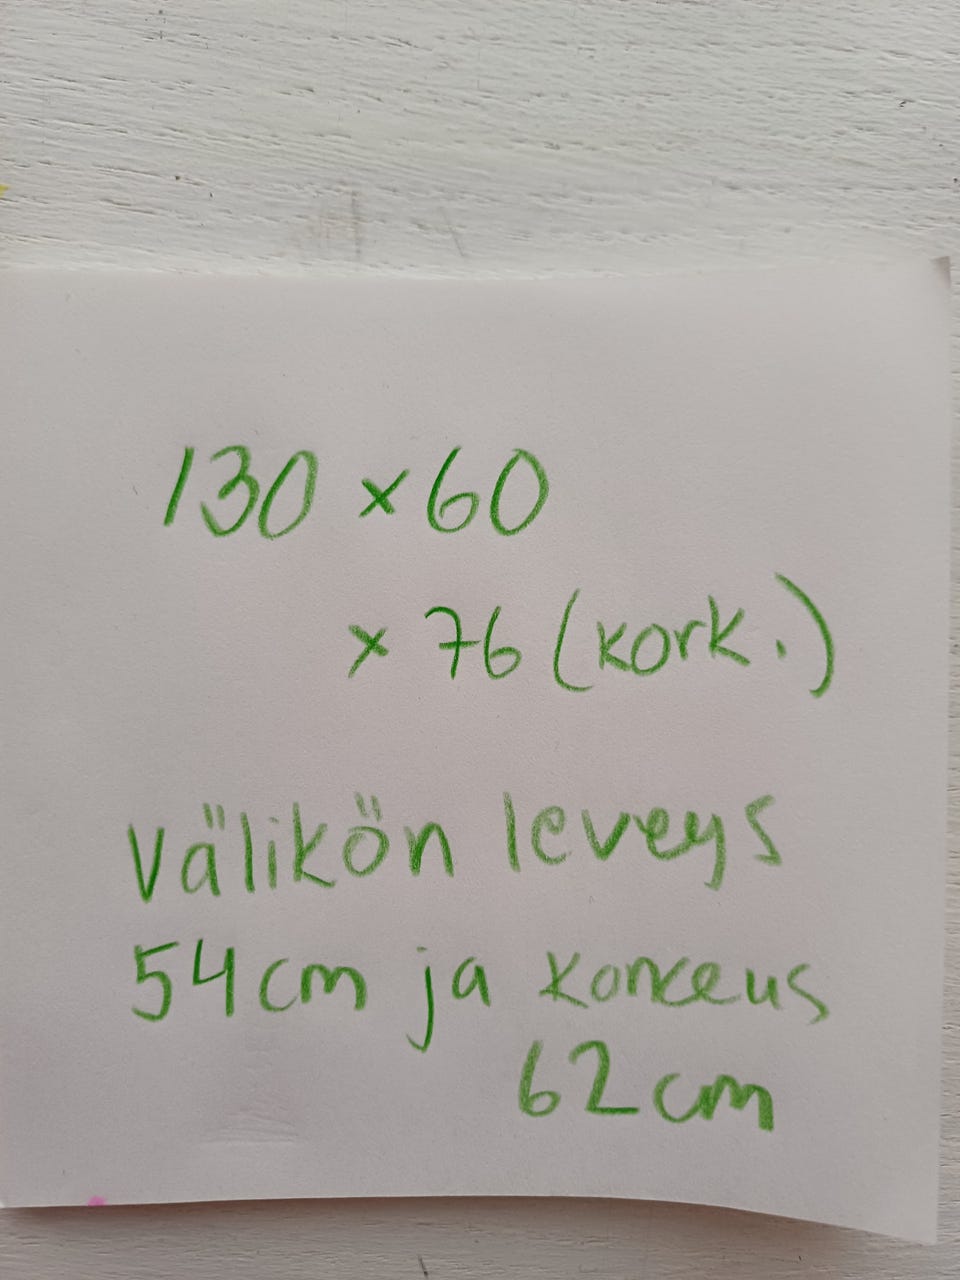 130 × 60
× 76 (kork.)
Välikön leveys
54cm ja korkeus
62cm